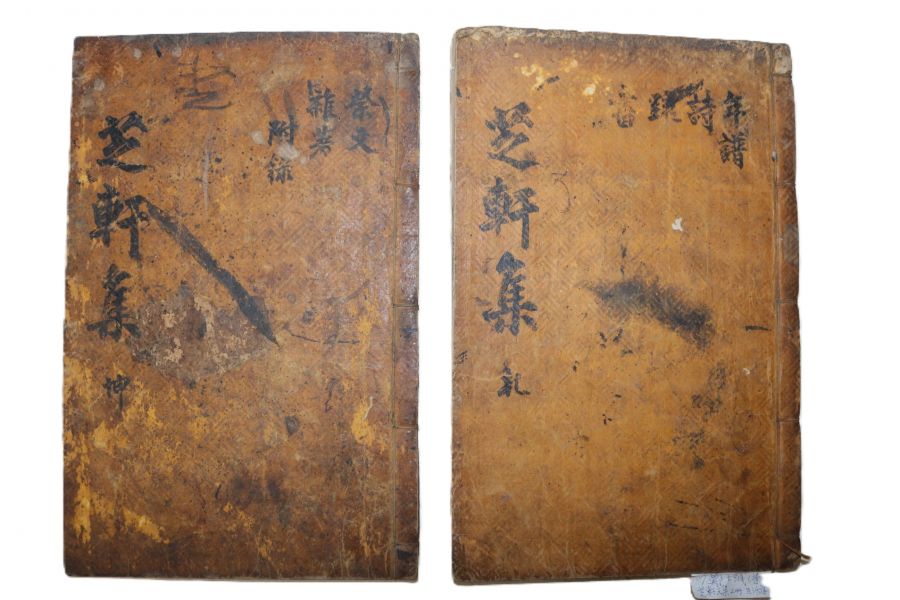 年譜
詩
書
芝軒集
乹
祭文
雜著
附錄
芝軒集
坤
芝